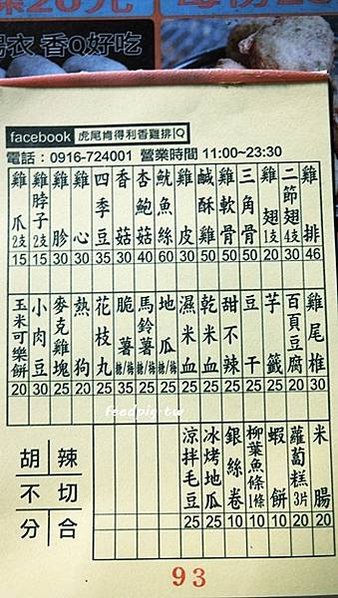 香Q好吃
facebook 虎尾肯得利香雞排 Q
電話：0916-724001 營業時間 11:00~23:30
雞排 46
二節翅4支 30
雞翅1支 20
三角骨 30
雞軟骨 50
鹹酥雞 50
雞皮 30
魷魚絲 60
杏鮑菇 40
香菇 30
四季豆 35
雞心 30
雞胗 30
雞脖子2支 15
雞爪2支 15
雞尾椎 30
百頁豆腐 20
芋籤 25
豆干 25
甜不辣 25
乾米血 25
濕米血 25
地瓜 25
馬鈴薯 25
脆薯 35
花枝丸 25
熱狗 20
麥克雞塊 25
小肉豆 30
玉米可樂餅 20
米腸 20
蘿蔔糕3片 20
蝦餅 10
柳葉魚1條 10
銀絲卷 10
冰烤地瓜 25
涼拌毛豆 25
胡 辣
不 切
分 合
93
feedpig.tw